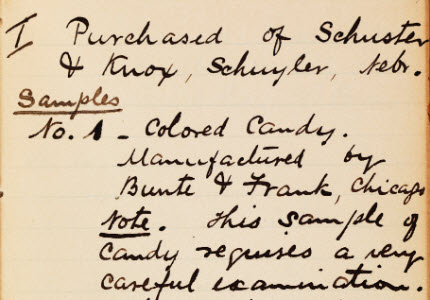 I Purchased of Schuster
& Knox, Schuyler, Nebr.
Samples
No. 1 - Colored Candy.
Manufactured by
Bunte & Frank, Chicago
Note. This sample of
Candy requires a very
careful examination.